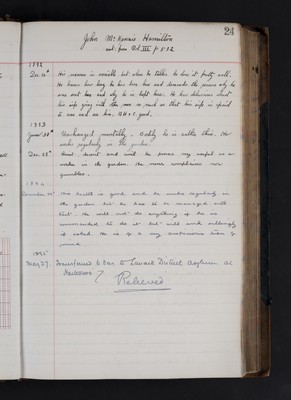 24
John McKennie Hamilton
cont. from Vol. III p. 512
1892
Dec. 12th His manner is amiable but when he talks he does it pretty well.
He knows how long he has been here and demands the reason why he
was sent here and why he is kept here. He has delusions about
his wife going with other men so much so that his wife is afraid
to come and see him. G.H. is good.
1893
June 30th Unchanged mentally. Bodily he is rather thin. He
works regularly in the garden.
Dec. 28th Quiet, decent and civil he proves very useful as a
worker in the garden. He never complains nor
grumbles.
1894
His health is good and he works regularly in
the garden but he has to be managed with
tact. He will not do anything if he is
commanded to do it but will work willingly
if asked. He is of a very suspicious turn of
mind.
1895
May 27. Transferred to Lanark District Asylum at
Hartwood
Relieved